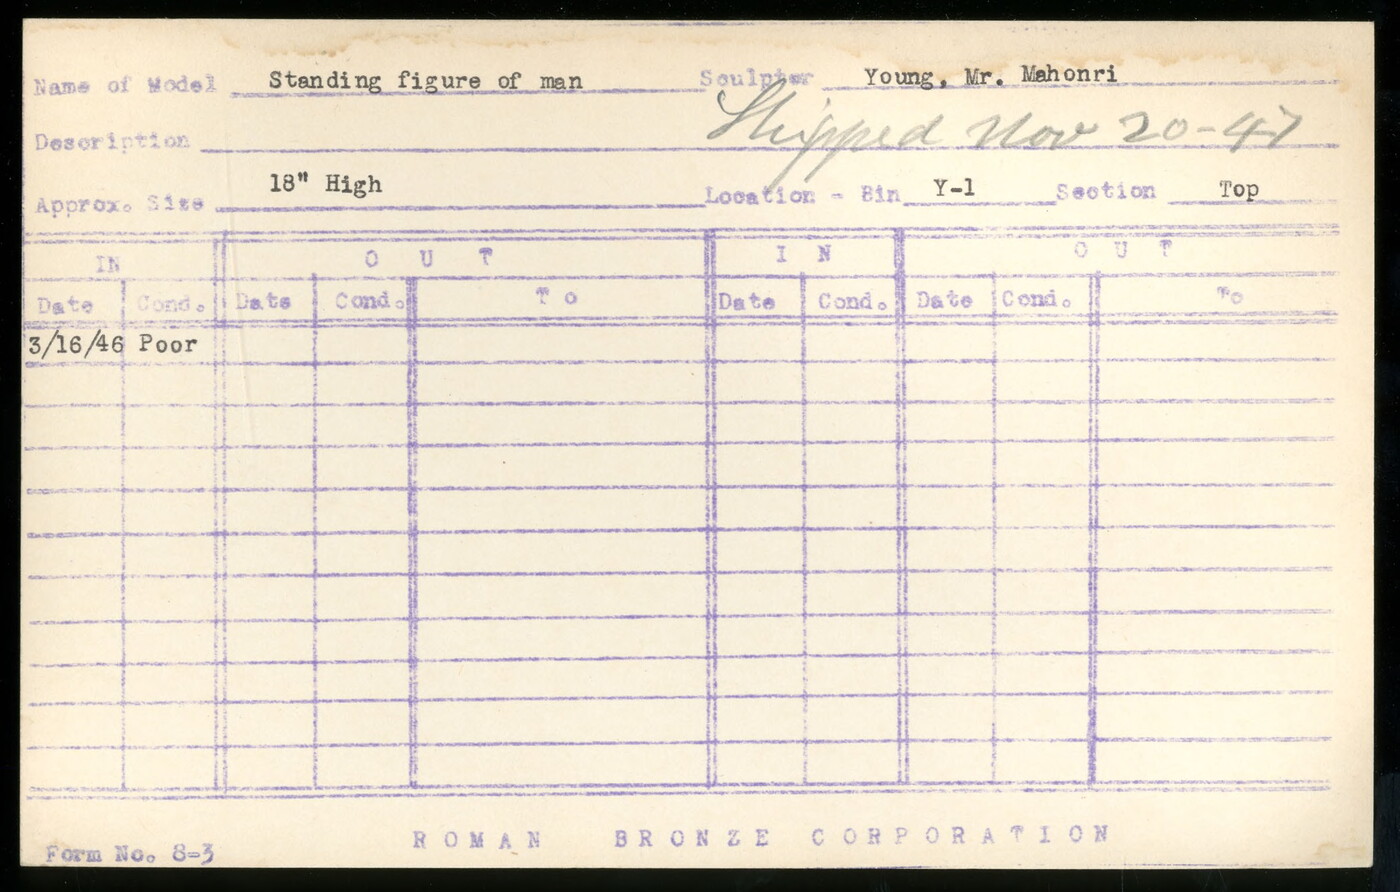 Name of Model Standing figure of man Sculptor Young, Mr. Mahonri
Shipped Nov 20-47
Description
Approx. Size 18" High Location - Bin Y-1 Section Top
IN OUT IN OUT
Date Cond. Date Cond. To Date Cond. Date Cond. To
3/16/46 Poor
ROMAN BRONZE CORPORATION
Form No. 8-3